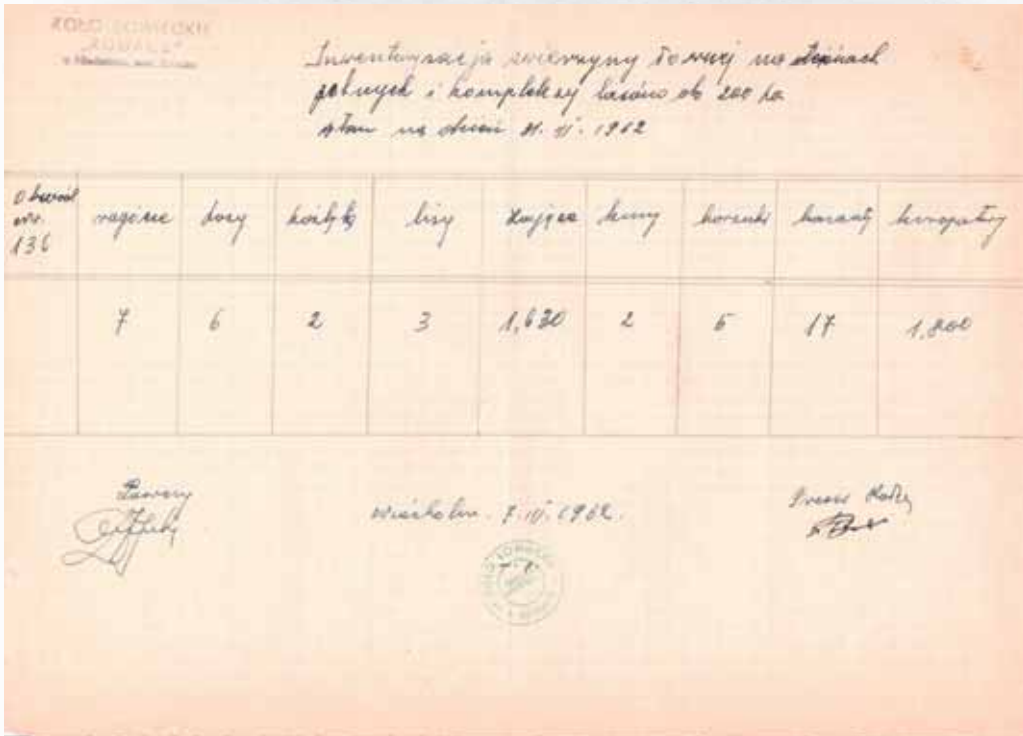 KOŁO ŁOWIECKIE
Inwentaryzacja zwierzyny łownej na
polnych i kompleksy lasów do 200 ha
stan na dzień 31. III. 1962
Obwód nr. 136
rogacze
kozy
koźlęta
lisy
zające
kuny
borsuki
bażanty
kuropatwy
7
6
2
3
1,630
2
5
17
1,800
Łowczy
7. IV. 1962.
Prezes Koła